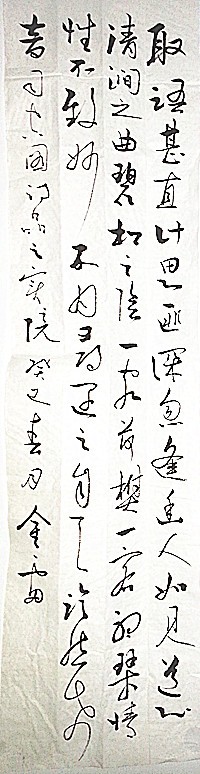 取语甚直计思匪深忽逢幽人如见道心
清涧之曲碧松之阴一客荷樵一客听琴情
性所致妙不自寻遇之自天泠然希
音司空图诗品之实境癸巳春月金雷